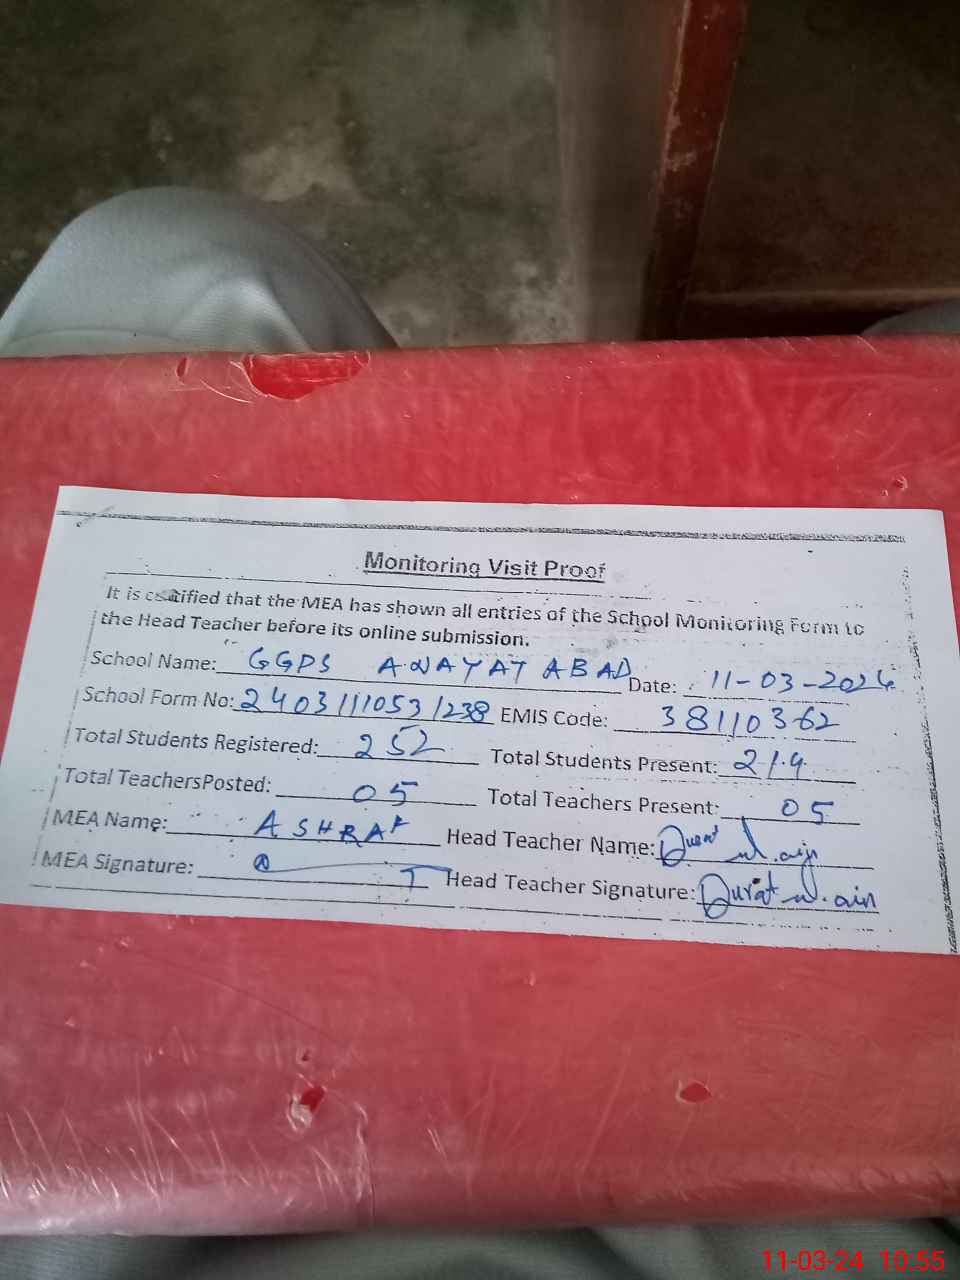 Monitoring Visit Proof
It is certified that the MEA has shown all entries of the School Monitoring Form to
the Head Teacher before its online submission.
School Name: GGPS ANAYAT ABAD Date: 11-03-2024
School Form No: 24031110531238 EMIS Code: 38110362
Total Students Registered: 252 Total Students Present: 219
Total TeachersPosted: 05 Total Teachers Present: 05
MEA Name: ASHRAF Head Teacher Name: Qurat ul.ain
MEA Signature: Head Teacher Signature: Qurat ul.ain
11-03-24 10:55